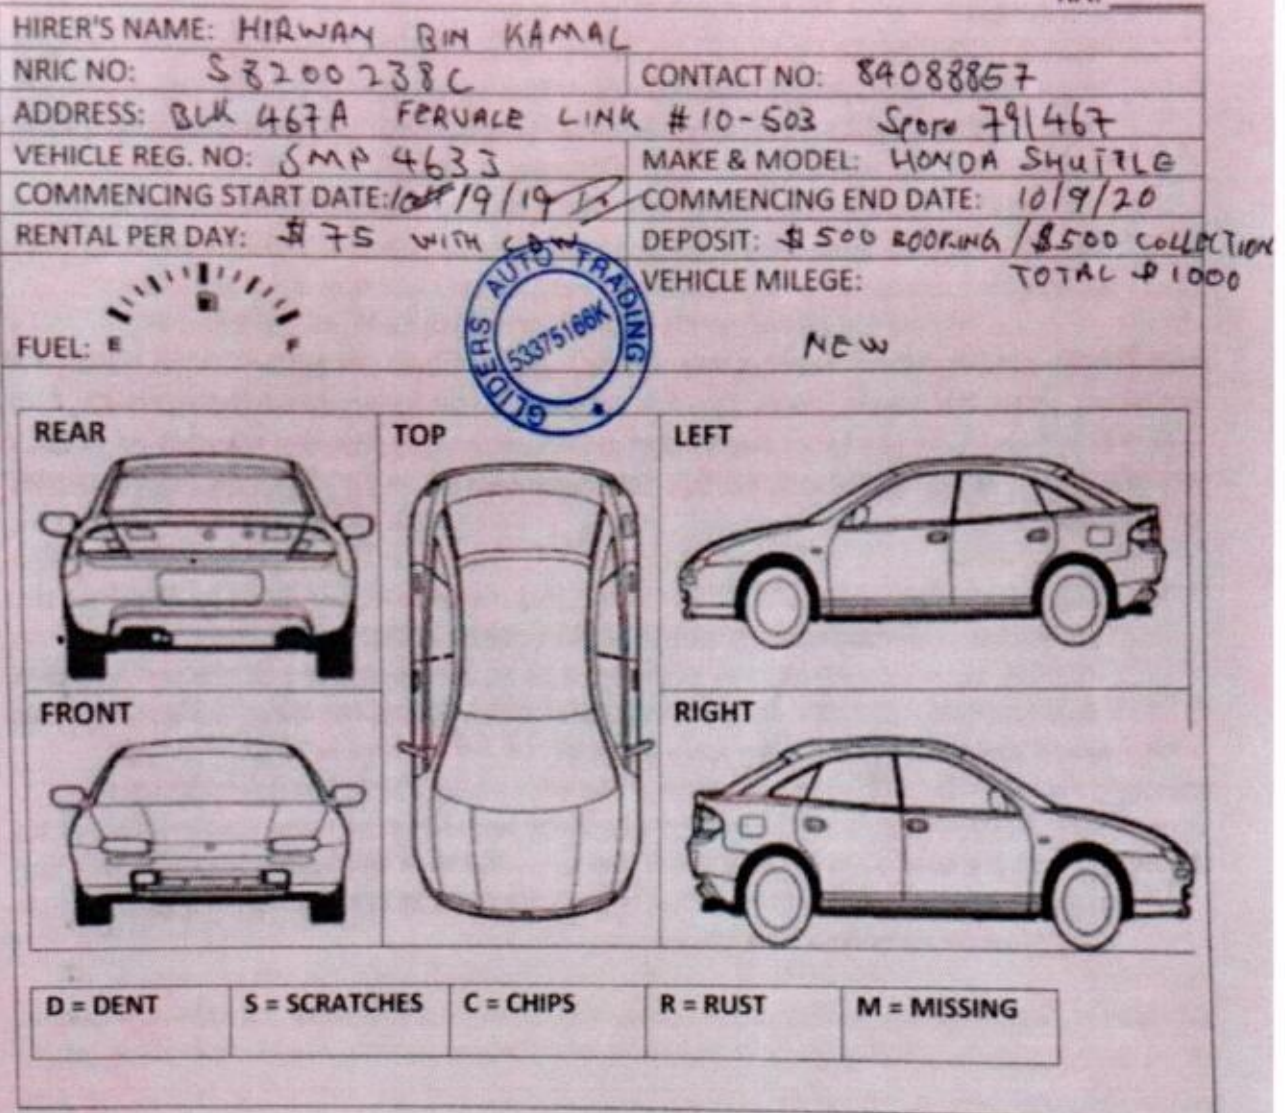 HIRER'S NAME: HIRWAN BIN KAMAL
NRIC NO: S8200238C CONTACT NO: 84088857
ADDRESS: BLK 467A FERVALE LINK #10-503 S'pore 791467
VEHICLE REG. NO: SMP 4633 MAKE & MODEL: HONDA SHUTTLE
COMMENCING START DATE: 10/9/19 COMMENCING END DATE: 10/9/20
RENTAL PER DAY: $75 WITH CDW DEPOSIT: $500 BOOKING / $500 COLLECTION
VEHICLE MILEGE: TOTAL $1000
FUEL: E F NEW
GLIDERS AUTO TRADING
53375166K
REAR TOP LEFT
FRONT RIGHT
D = DENT S = SCRATCHES C = CHIPS R = RUST M = MISSING